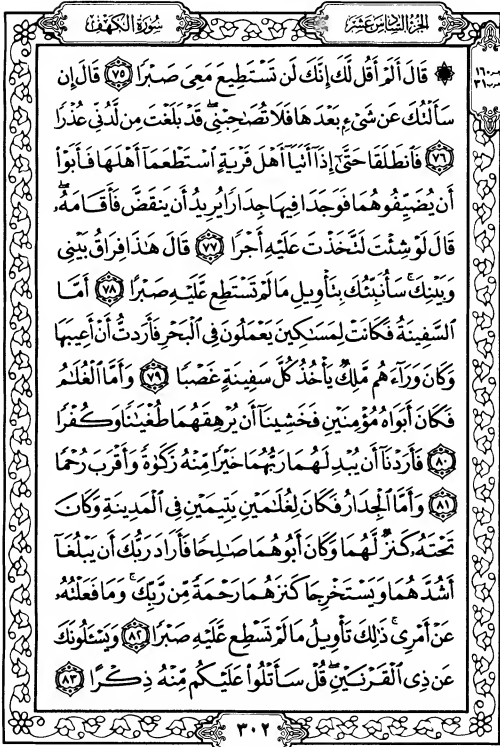 سُورَةُ الكَهْفِ
الجُزْءُ السَّادِسَ عَشَرَ
۞ قَالَ أَلَمْ أَقُل لَّكَ إِنَّكَ لَن تَسْتَطِيعَ مَعِىَ صَبْرًا ٧٥ قَالَ إِن
سَأَلْتُكَ عَن شَىْءٍۭ بَعْدَهَا فَلَا تُصَـٰحِبْنِى ۖ قَدْ بَلَغْتَ مِن لَّدُنِّى عُذْرًا
٧٦ فَٱنطَلَقَا حَتَّىٰٓ إِذَآ أَتَيَآ أَهْلَ قَرْيَةٍ ٱسْتَطْعَمَآ أَهْلَهَا فَأَبَوْا۟
أَن يُضَيِّفُوهُمَا فَوَجَدَا فِيهَا جِدَارًا يُرِيدُ أَن يَنقَضَّ فَأَقَامَهُۥ ۖ
قَالَ لَوْ شِئْتَ لَتَّخَذْتَ عَلَيْهِ أَجْرًا ٧٧ قَالَ هَـٰذَا فِرَاقُ بَيْنِى
وَبَيْنِكَ ۚ سَأُنَبِّئُكَ بِتَأْوِيلِ مَا لَمْ تَسْتَطِع عَّلَيْهِ صَبْرًا ٧٨ أَمَّا
ٱلسَّفِينَةُ فَكَانَتْ لِمَسَـٰكِينَ يَعْمَلُونَ فِى ٱلْبَحْرِ فَأَرَدتُّ أَنْ أَعِيبَهَا
وَكَانَ وَرَآءَهُم مَّلِكٌ يَأْخُذُ كُلَّ سَفِينَةٍ غَصْبًا ٧٩ وَأَمَّا ٱلْغُلَـٰمُ
فَكَانَ أَبَوَاهُ مُؤْمِنَيْنِ فَخَشِينَآ أَن يُرْهِقَهُمَا طُغْيَـٰنًا وَكُفْرًا
٨٠ فَأَرَدْنَآ أَن يُبْدِلَهُمَا رَبُّهُمَا خَيْرًا مِّنْهُ زَكَوٰةً وَأَقْرَبَ رُحْمًا
٨١ وَأَمَّا ٱلْجِدَارُ فَكَانَ لِغُلَـٰمَيْنِ يَتِيمَيْنِ فِى ٱلْمَدِينَةِ وَكَانَ
تَحْتَهُۥ كَنزٌ لَّهُمَا وَكَانَ أَبُوهُمَا صَـٰلِحًا فَأَرَادَ رَبُّكَ أَن يَبْلُغَآ
أَشُدَّهُمَا وَيَسْتَخْرِجَا كَنزَهُمَا رَحْمَةً مِّن رَّبِّكَ ۚ وَمَا فَعَلْتُهُۥ
عَنْ أَمْرِى ۚ ذَٰلِكَ تَأْوِيلُ مَا لَمْ تَسْطِع عَّلَيْهِ صَبْرًا ٨٢ وَيَسْـَٔلُونَكَ
عَن ذِى ٱلْقَرْنَيْنِ ۖ قُلْ سَأَتْلُوا۟ عَلَيْكُم مِّنْهُ ذِكْرًا ٨٣
٣٠٢